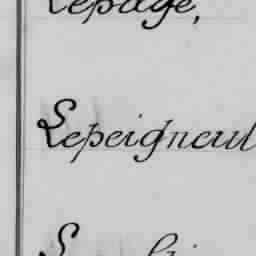 Lepage,
Lepeigneul